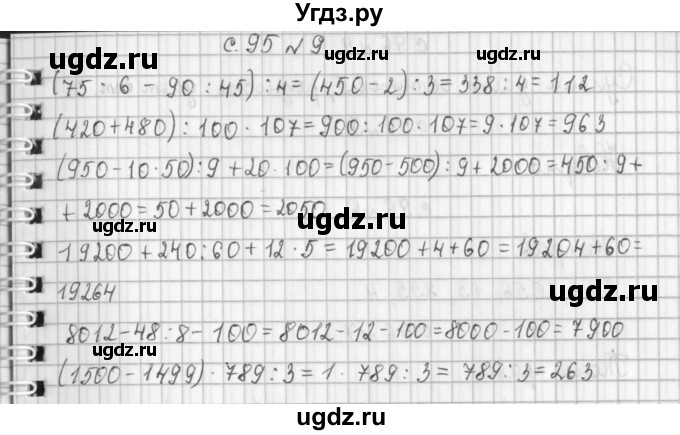 Угдз.ру
с. 95 № 9
(75 : 6 - 90 : 45) : 4 = (450 - 2) : 3 = 338 : 4 = 112
(420 + 480) : 100 · 107 = 900 : 100 · 107 = 9 · 107 = 963
(950 - 10 · 50) : 9 + 20 · 100 = (950 - 500) : 9 + 2000 = 450 : 9 +
+ 2000 = 50 + 2000 = 2050
19200 + 240 : 60 + 12 · 5 = 19200 + 4 + 60 = 19204 + 60 =
19264
8012 - 48 : 8 - 100 = 8012 - 12 - 100 = 8000 - 100 = 7900
(1500 - 1499) · 789 : 3 = 1 · 789 : 3 = 789 : 3 = 263
ugdz.ru
ugdz.ru
ugdz.ru
ugdz.ru
ugdz.ru
ugdz.ru
ugdz.ru
ugdz.ru
ugdz.ru
ugdz.ru